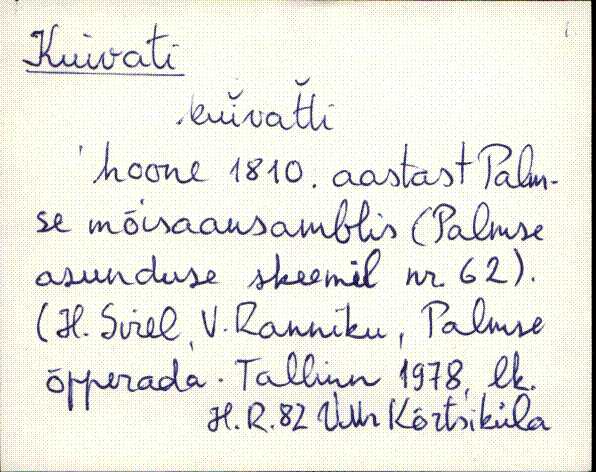 Kuivati
kŭvat̆ti
hoone 1810. aastast Palm-
se mõisaansamblis (Palmse
asunduse skeemil nr. 62).
(H. Sirel, V. Ranniku, Palmse
õpperada. Tallinn 1978, lk.
H. R. 82 VMr Kõrtsiküla